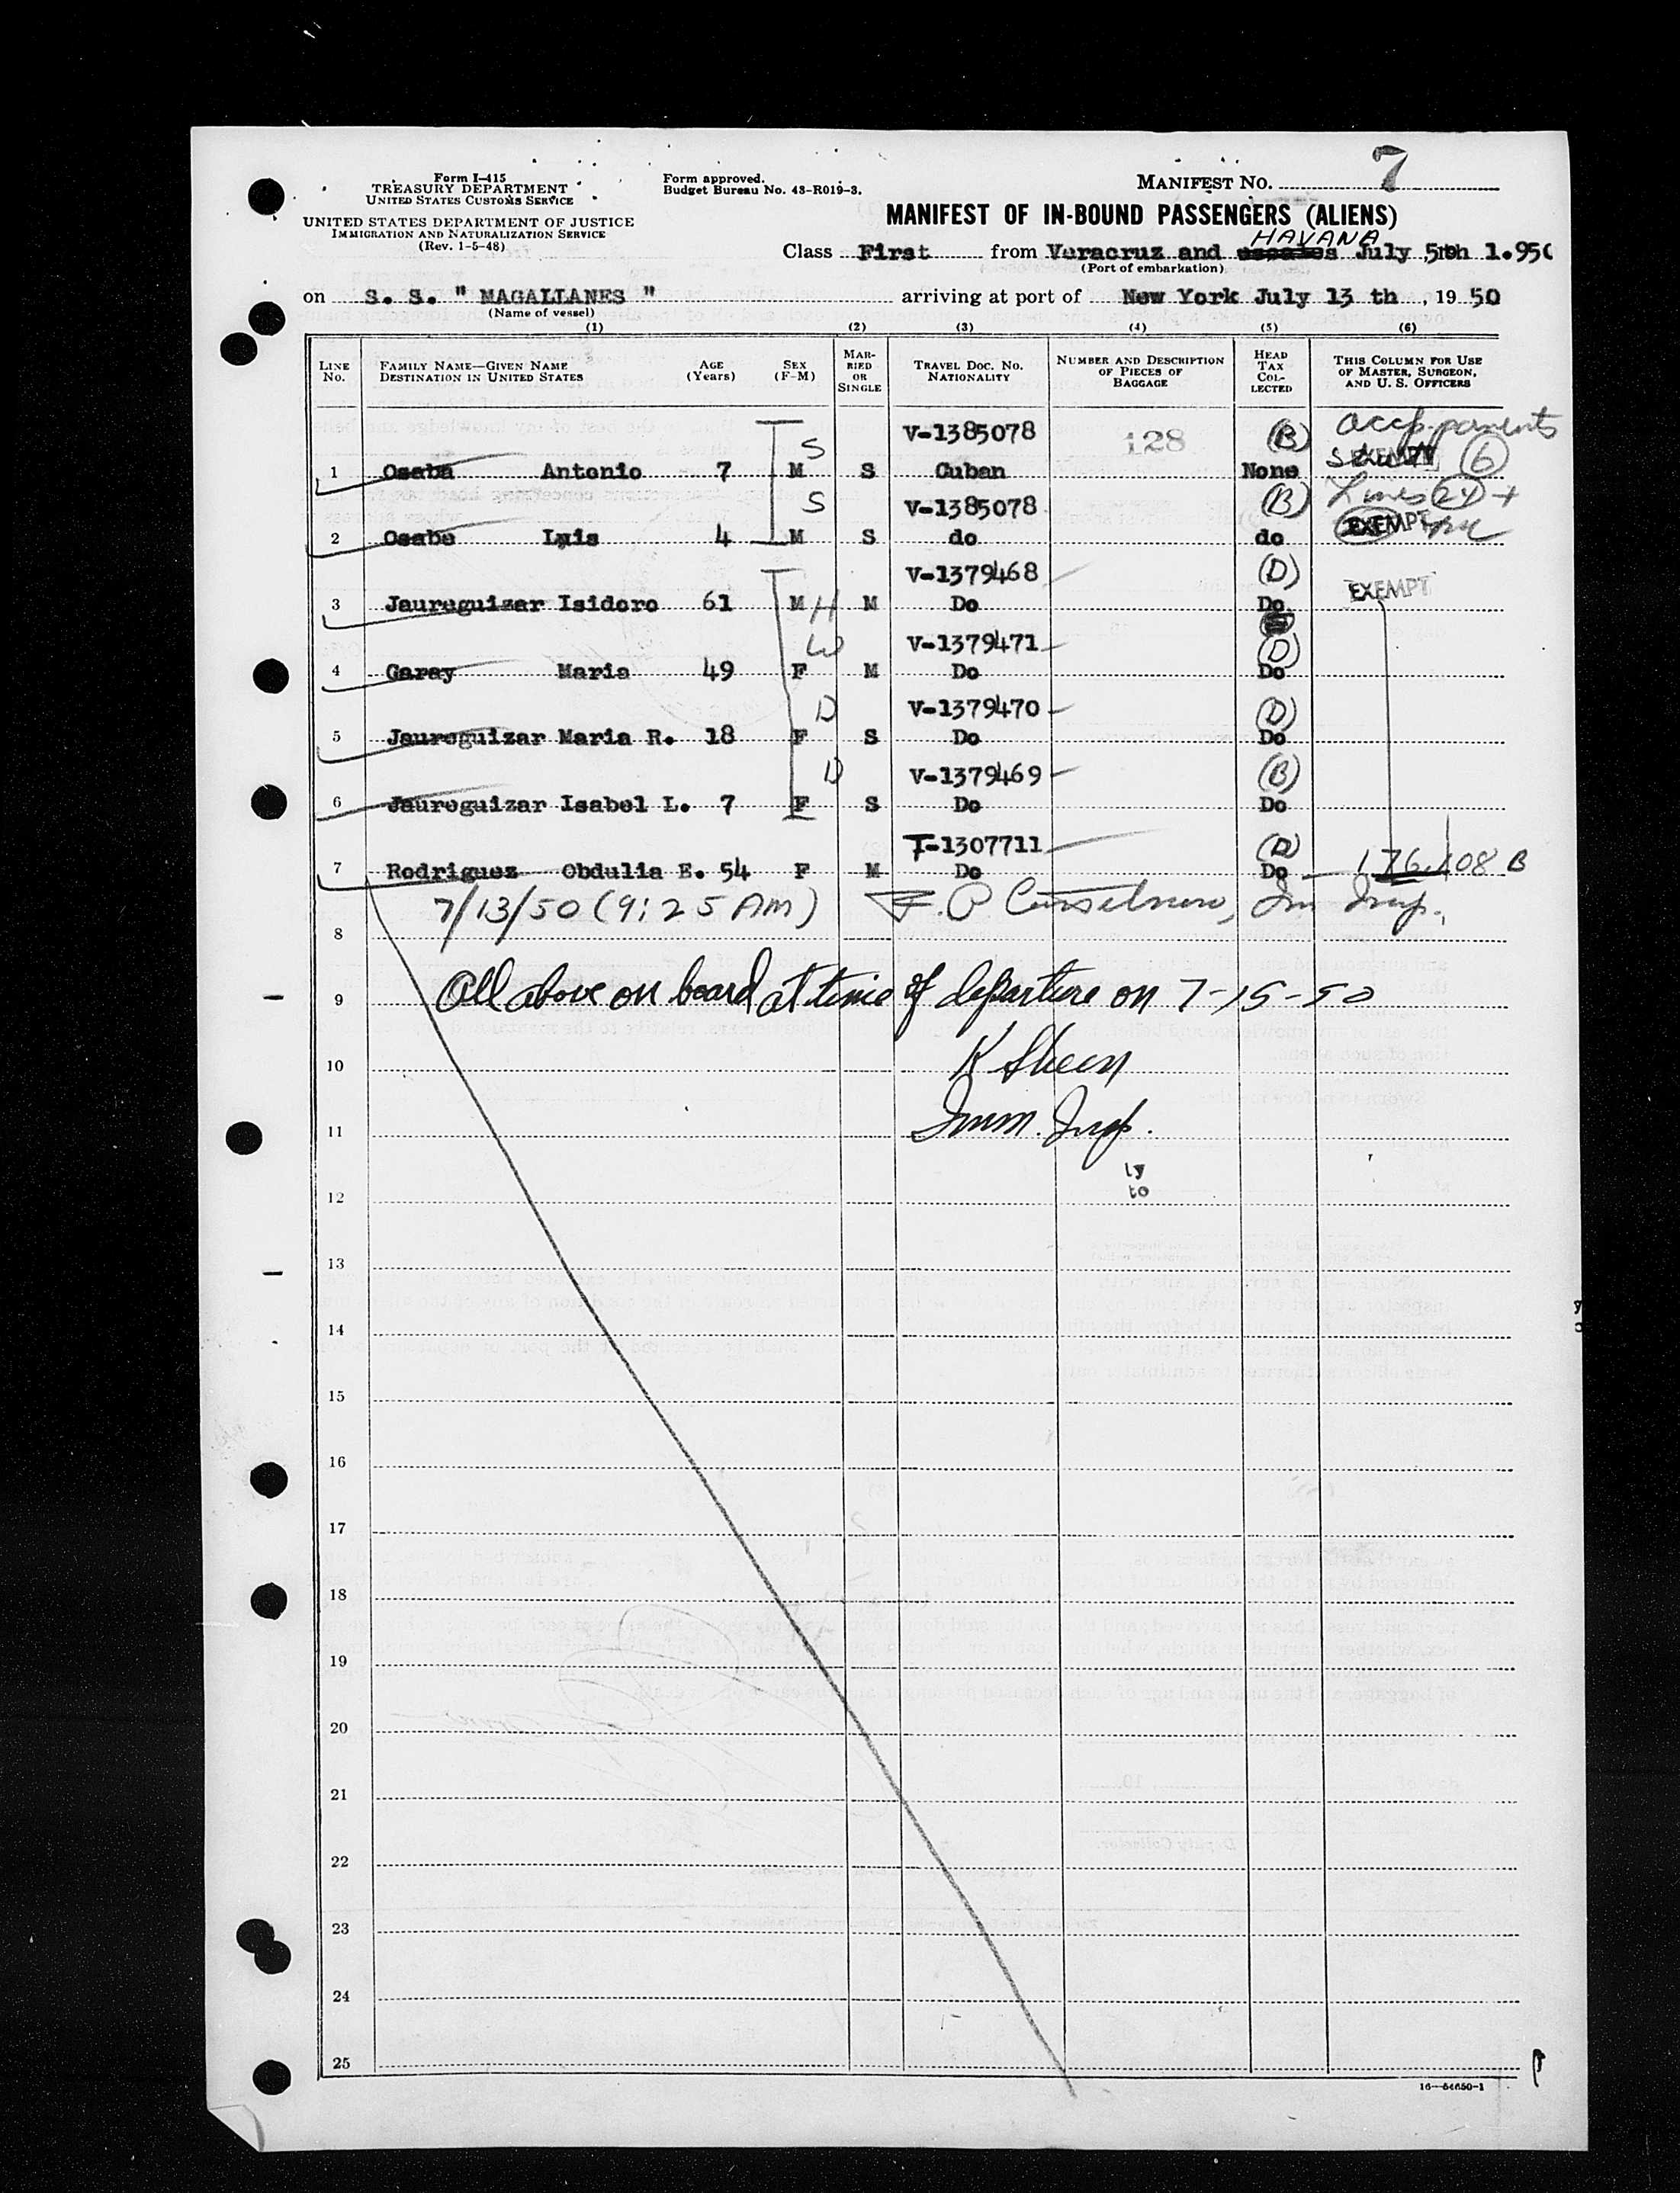 Form I-415
TREASURY DEPARTMENT
UNITED STATES CUSTOMS SERVICE
UNITED STATES DEPARTMENT OF JUSTICE
IMMIGRATION AND NATURALIZATION SERVICE
(Rev. 1-5-48)
Form approved.
Budget Bureau No. 43-R019-3.
MANIFEST NO. 7
MANIFEST OF IN-BOUND PASSENGERS (ALIENS)
HAVANA
Class First from Veracruz and July 5th 1.950
(Port of embarkation)
on S. S. " MAGALLANES " arriving at port of New York July 13 th , 19 50
(Name of vessel)
(1) (2) (3) (4) (5) (6)
LINE No. FAMILY NAME—GIVEN NAME DESTINATION IN UNITED STATES AGE (Years) SEX (F-M) MARRIED OR SINGLE TRAVEL DOC. NO. NATIONALITY NUMBER AND DESCRIPTION OF PIECES OF BAGGAGE HEAD TAX COLLECTED THIS COLUMN FOR USE OF MASTER, SURGEON, AND U. S. OFFICERS
S V-1385078 128 (B) parents
1 Osaba Antonio 7 M S Cuban None EXEMPT 6
S V-1385078 (B) Lines
2 Osaba Luis 4 M S do do EXEMPT
V-1379468 (D) EXEMPT
3 Jaureguizar Isidoro 61 M H M Do Do
W V-1379471 (D)
4 Garay Maria 49 F M Do Do
D V-1379470 (D)
5 Jaureguizar Maria R. 18 F S Do Do
D V-1379469 (B)
6 Jaureguizar Isabel L. 7 F S Do Do
T-1307711 (D)
7 Rodriguez Obdulia E. 54 F M Do Do 176.108 B
7/13/50 (9:25 AM) Im Insp.
8
9 All above on board at time of departure on 7-15-50
K Sheen
10
11 Imm. Insp.
ly
to
12
13
14
15
16
17
18
19
20
21
22
23
24
25
16—54650-1